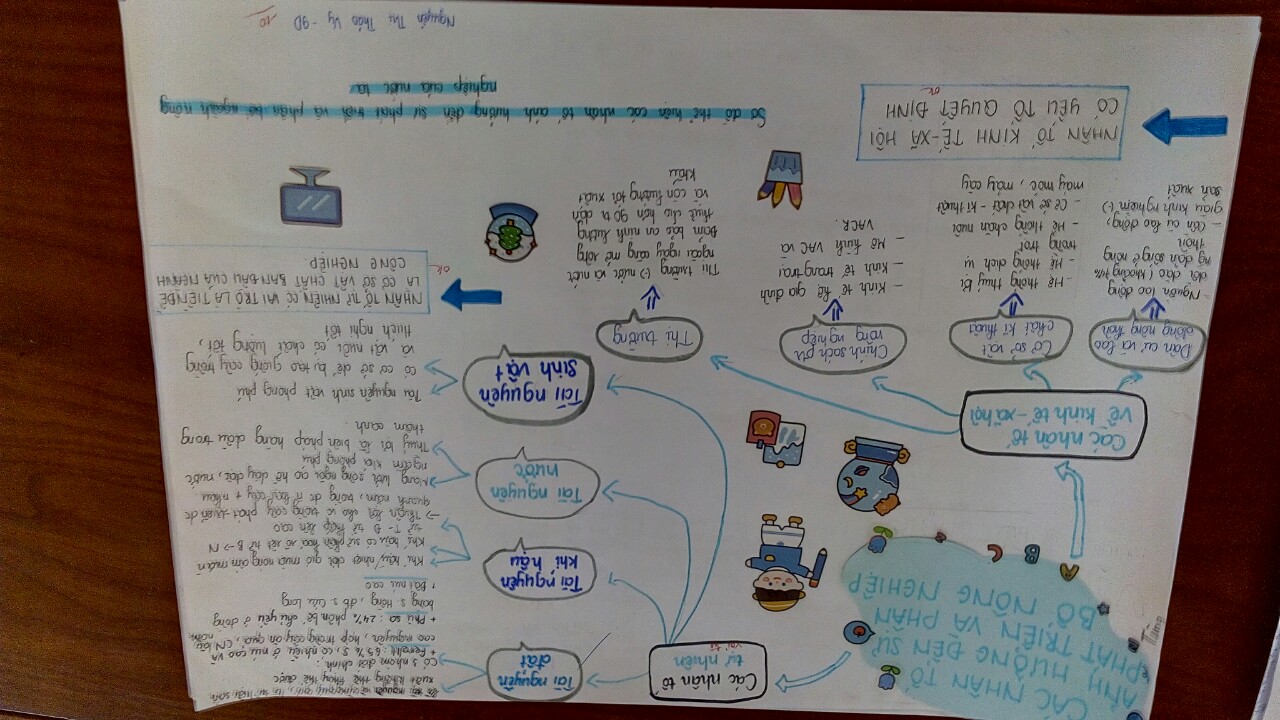 CÁC NHÂN TỐ
ẢNH HƯỞNG ĐẾN SỰ
PHÁT TRIỂN VÀ PHÂN
BỐ NÔNG NGHIỆP
A
B
C
Các nhân tố
tự nhiên
Tài nguyên
đất
là tài nguyên vô cùng quý giá, là tư liệu sản
xuất không thể thay thế được
Có 2 nhóm đất chính:
+ Feralit: 65%
cao nguyên, hợp trồng cây ăn quả, CN lâu năm
+ Phù sa: 24% phân bố chủ yếu ở đồng
bằng s. Hồng, đb s. Cửu Long
+ Đất núi cao
Tài nguyên
khí hậu
Khí hậu nhiệt đới gió mùa nóng ẩm
Khí hậu có sự phân hoá rõ rệt từ B → N
từ T - Đ từ thấp lên cao
→ Thuận lợi cho
quanh năm
Tài nguyên
nước
Mạng lưới sông ngòi ao hồ dày đặc, nước
ngầm khá phong phú
Thuỷ lợi là biện pháp hàng đầu trong
thâm canh.
Tài nguyên
sinh vật
Tài nguyên sinh vật phong phú
có cơ sở để tạo giống cây trồng
và vật nuôi có chất lượng tốt,
thích nghi tốt
NHÂN TỐ TỰ NHIÊN CÓ VAI TRÒ LÀ TIỀN ĐỀ
LÀ CƠ SỞ VẬT CHẤT BAN ĐẦU CỦA NGÀNH
CÔNG NGHIỆP.
ok
Các nhân tố
về kinh tế - xã hội
Dân cư và lao
động nông thôn
- Nguồn lao động
dồi dào
ng dân sống ở nông
thôn
- Cần cù lao động,
giàu kinh nghiệm (-)
sản xuất
Cơ sở vật
chất kĩ thuật
- Hệ thống thuỷ lợi
- Hệ thống dịch vụ
trồng trọt
- Hệ thống chăn nuôi
- Cơ sở vật chất - kĩ thuật
máy móc, máy cày
Chính sách ptr
nông nghiệp
- Kinh tế hộ gia đình
- Kinh tế trang trại
- Mô hình VAC và
VACR.
Thị trường
Thị trường (-) nước và nước
ngoài ngày càng mở rộng
Đảm bảo an ninh lương
thực cho hơn 90 tr dân
và còn hướng tới xuất
khẩu
NHÂN TỐ KINH TẾ - XÃ HỘI
CÓ YẾU TỐ QUYẾT ĐỊNH
ok
Sơ đồ thể hiện các nhân tố ảnh hưởng đến sự phát triển và phân bố ngành nông
nghiệp của nước ta
Nguyễn Thị Thảo Vy - 9D
10